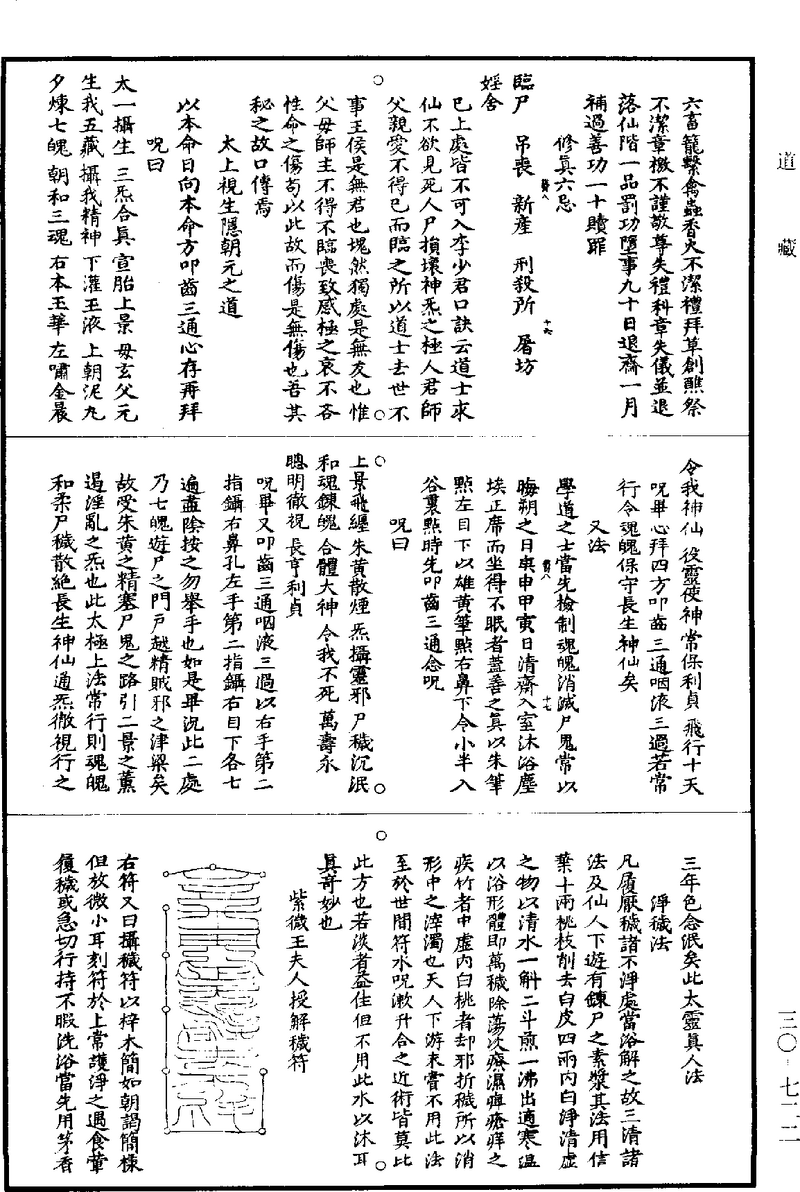 道藏
六畜籠繫禽蟲香火不潔禮拜草創醮祭
不潔章檄不謹敬尊失禮科章失儀並退
落仙階一品罰功墮事九十日退齋一月
補過善功一十贖罪
修真六忌
臨尸 吊喪 新產 刑殺所 屠坊
婬舍
已上處皆不可入李少君口訣云道士求
仙不欲見死人尸損壞神炁之極人君師
父親愛不得已而臨之所以道士去世不
事王侯是無君也塊然獨處是無友也惟
父母師主不得不臨喪致感極之哀不吝
性命之傷苟以此故而傷是無傷也吾其
秘之故口傳焉
太上視生隱朝元之道
以本命日向本命方叩齒三通心存再拜
呪曰
太一攝生 三炁合真 宣胎上景 母玄父元
生我五藏 攝我精神 下灌玉液 上朝泥丸
夕煉七魄 朝和三魂 右本玉華 左嘯金晨
令我神仙 役靈使神 常保利貞 飛行十天
呪畢心拜四方叩齒三通咽液三過若常
行令魂魄保守長生神仙矣
又法
學道之士當先檢制魂魄消滅尸鬼常以
晦朔之日庚申甲寅日清齋入室沐浴塵
埃正席而坐得不眠者蓋善之真以朱筆
點左目下以雄黃筆點右鼻下令小半入
谷裏點時先叩齒三通念呪
呪曰
上景飛纏 朱黃散煙 炁攝靈邪 尸穢沉泯
和魂鍊魄 合體大神 令我不死 萬壽永
聰明徹視 長亨利貞
呪畢又叩齒三通咽液三過以右手第二
指鑷右鼻孔左手第二指鑷右目下各七
遍盡陰按之勿舉手也如是畢沉此二處
乃七魄遊尸之門戶越精賊邪之津梁矣
故受朱黃之精塞尸鬼之路引二景之薰
遏淫亂之炁也此太極上法常行則魂魄
和柔尸穢散絕長生神仙通炁徹視行之
三年色念泯矣此太靈真人法
淨穢法
凡履厭穢諸不淨處當浴解之故三清諸
法及仙人下遊有鍊尸之素漿其法用信
葉十兩桃枝削去白皮四兩內白淨清虛
之物以清水一斛二斗煎一沸出適寒溫
以浴形體即萬穢除蕩次療濕痺瘡痒之
疾竹者中虛內白桃者却邪折穢所以消
形中之滓濁也天人下游末嘗不用此法
至於世間符水呪漱升合之近術皆莫比
此方也若淡者益佳但不用此水以沐耳
真奇妙也
紫微王夫人授解穢符
右符又曰攝穢符以梓木簡如朝謁簡様
但放微小耳刻符於上常護淨之遇食葷
復穢或急切行持不暇洗浴當先用茅香
三〇-七二二